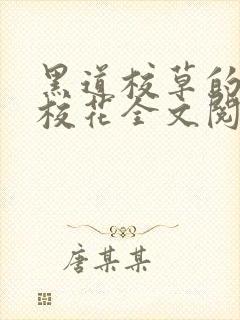 黑道校草的
校花全文阅
唐某某